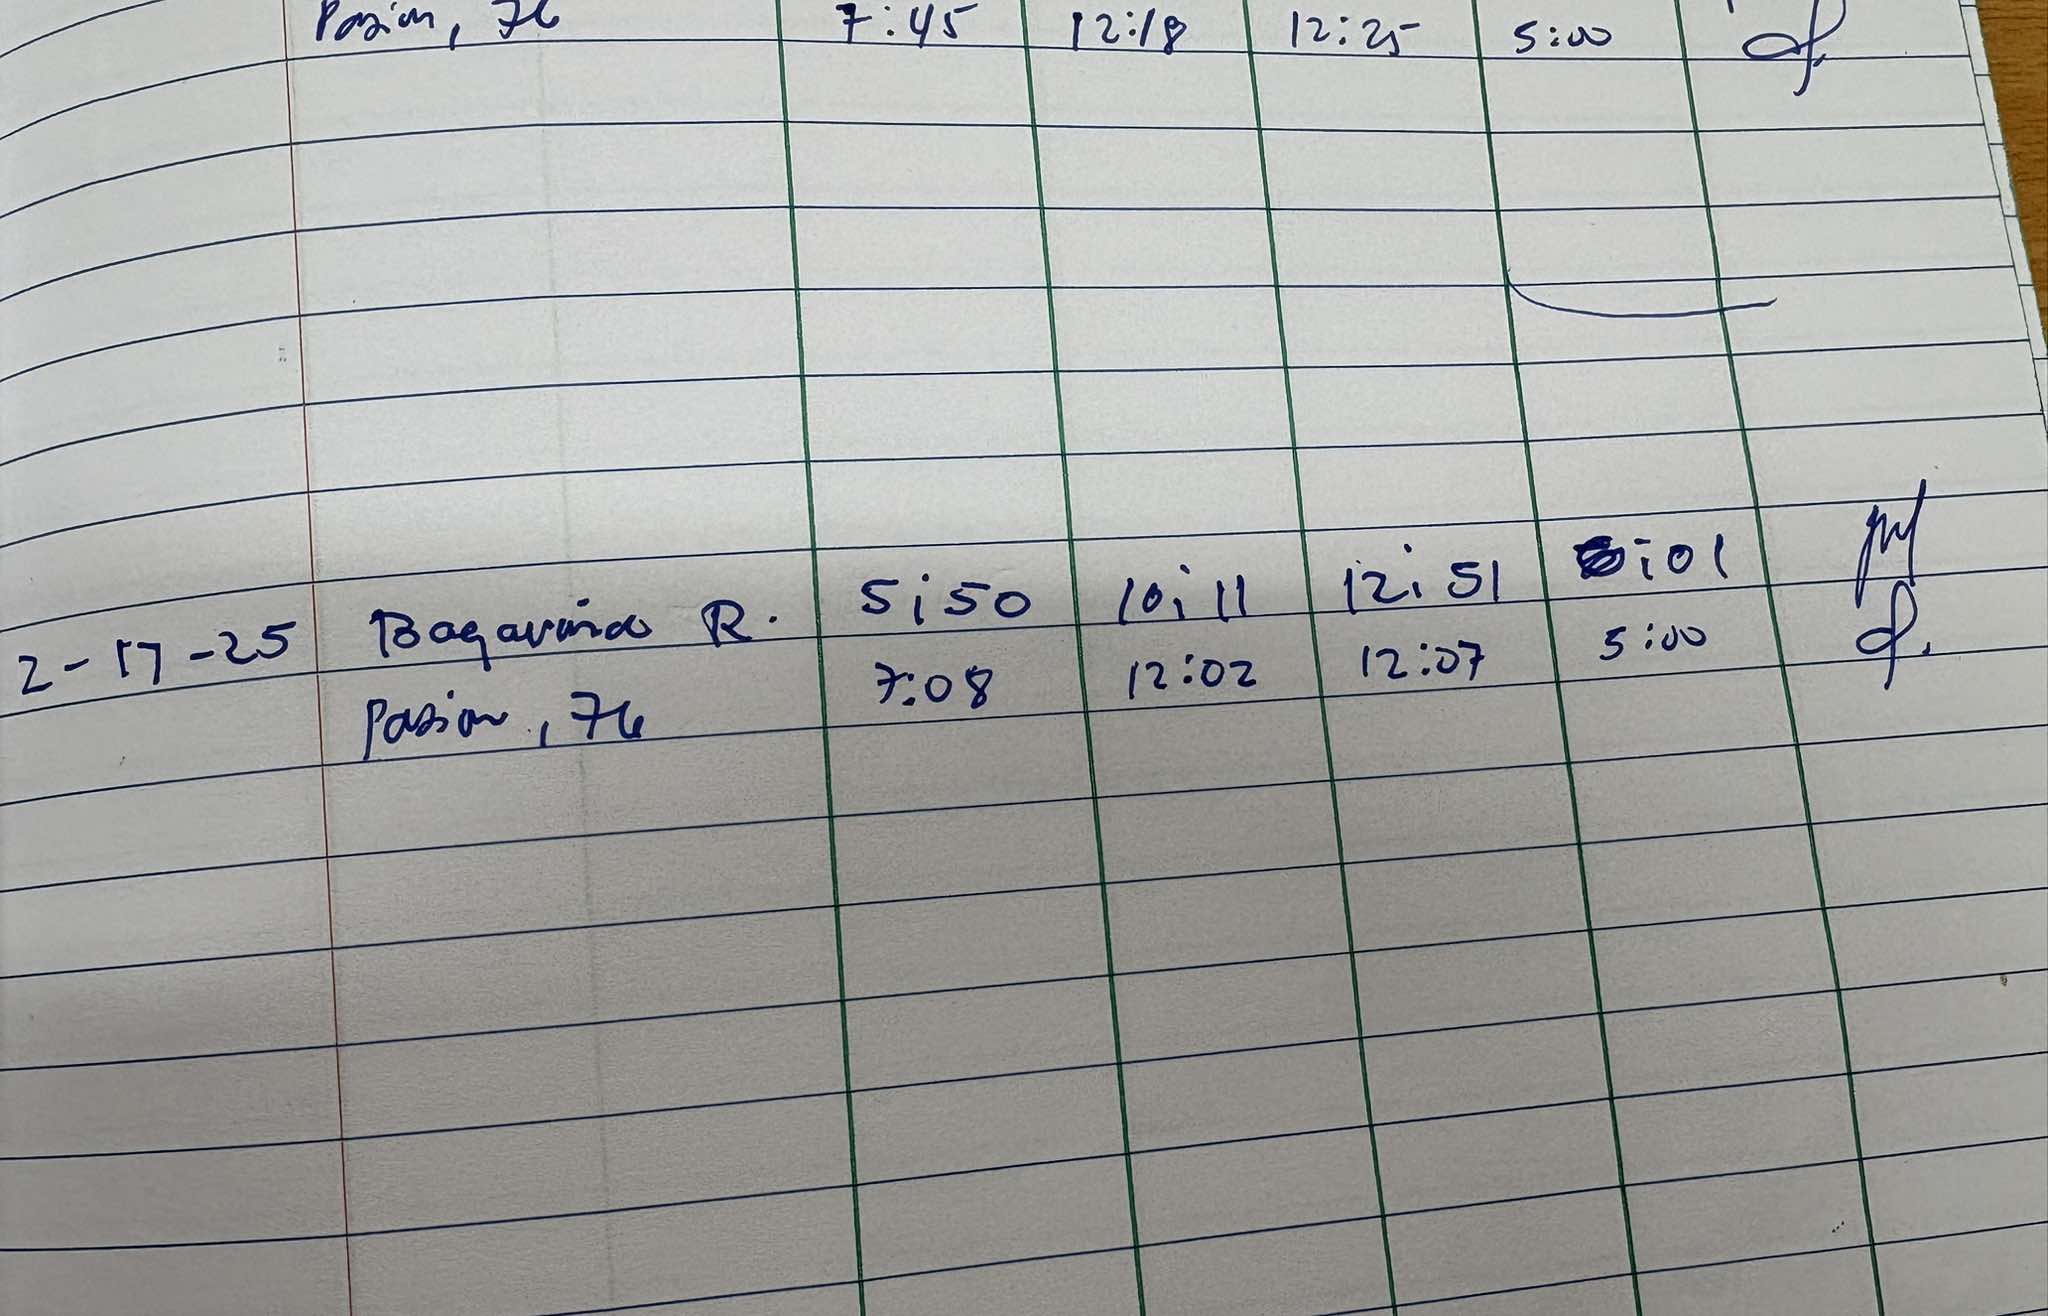 Pasion, 76 7:45 12:18 12:25 5:00
2-17-25 R. 5:50 10:11 12:51 :01
Pasion, 76 7:08 12:02 12:07 5:00